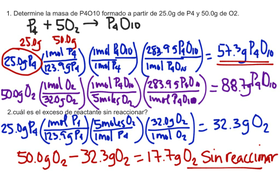 1. Determine la masa de P4O10 formado a partir de 25.0g de P4 y 50.0g de O2.
P₄ + 5O₂ → P₄O10
25.0g 50.0g
25.0gP₄ (1molP₄/123.9gP₄)(1molP₄O10/1molP₄)(283.9gP₄O10/1molP₄O10) = 57.3gP₄O10
50.0gO₂ (1molO₂/32.0gO₂)(1molP₄O10/5molesO₂)(283.9gP₄O10/1molP₄O10) = 88.7gP₄O10
2. ¿cuál es el exceso de reactante sin reaccionar?
25.0gP₄ (1molP₄/123.9gP₄)(5molesO₂/1molP₄)(32.0gO₂/1molO₂) = 32.3gO₂
50.0gO₂ − 32.3gO₂ = 17.7gO₂ Sin reaccionar